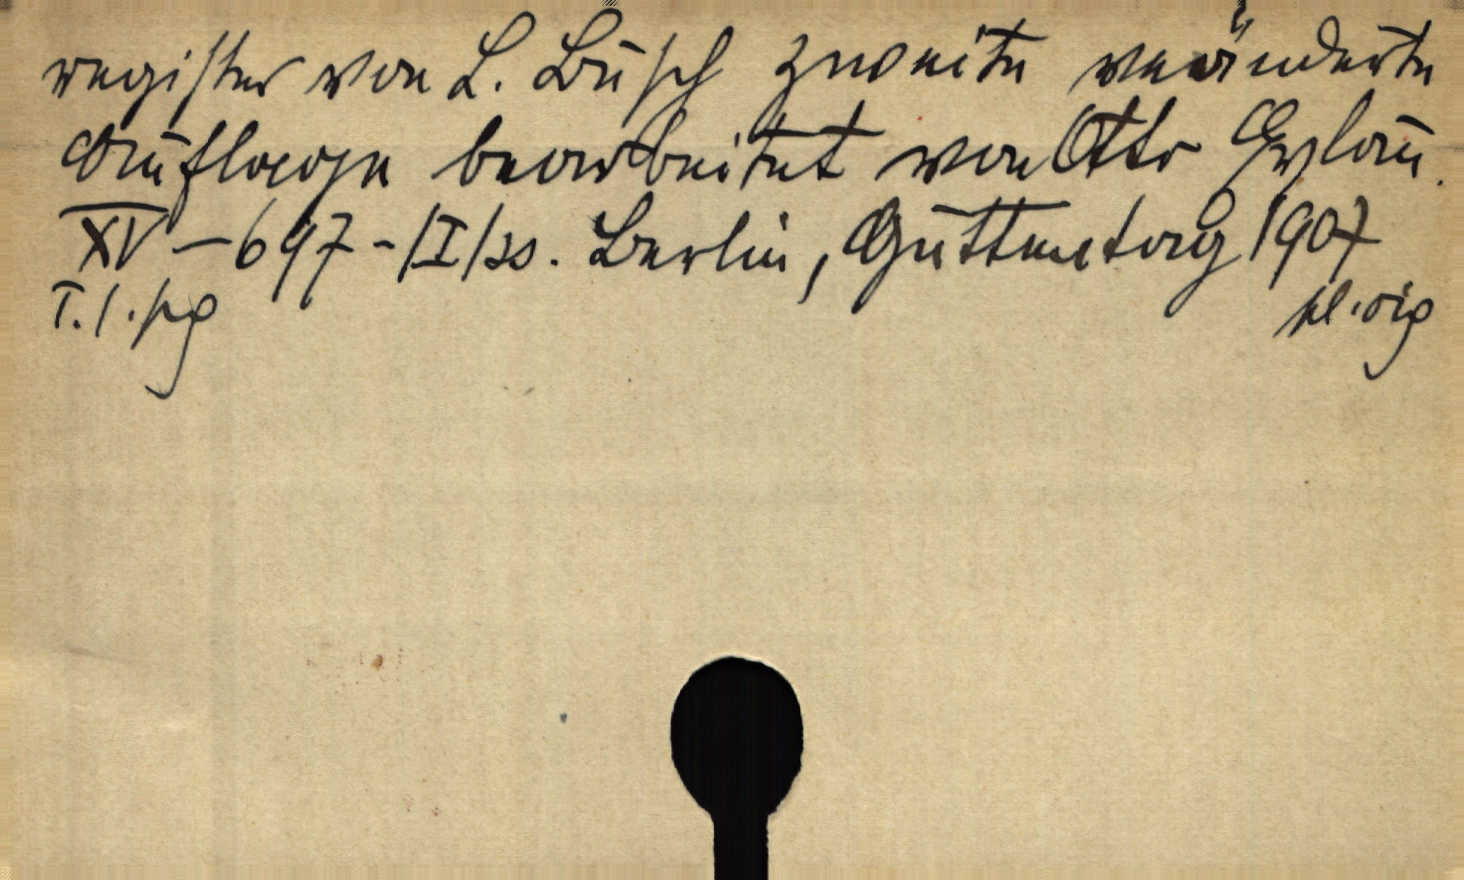 register von L. Busch zweite veränderte
Auflage bearbeitet von Otto Eylau.
XV – 697 - /I/ ss. Berlin, Guttentag 1907
T. 1.